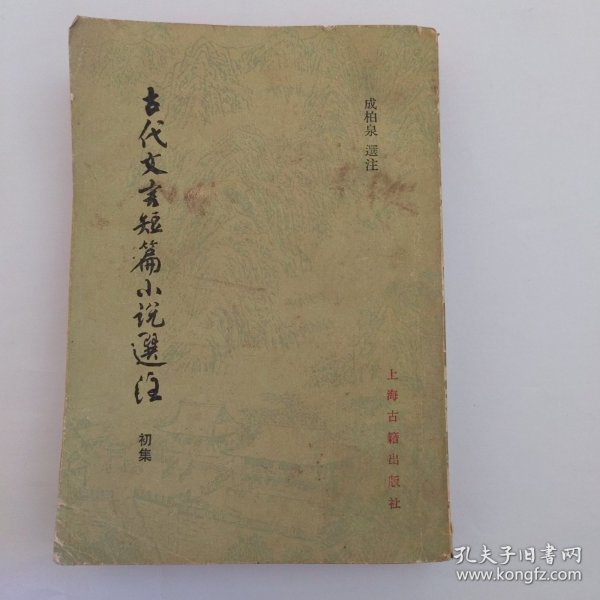 成柏泉 選注
古代文言短篇小说選注
初集
上海古籍出版社
孔夫子旧书网
www.kongfz.com